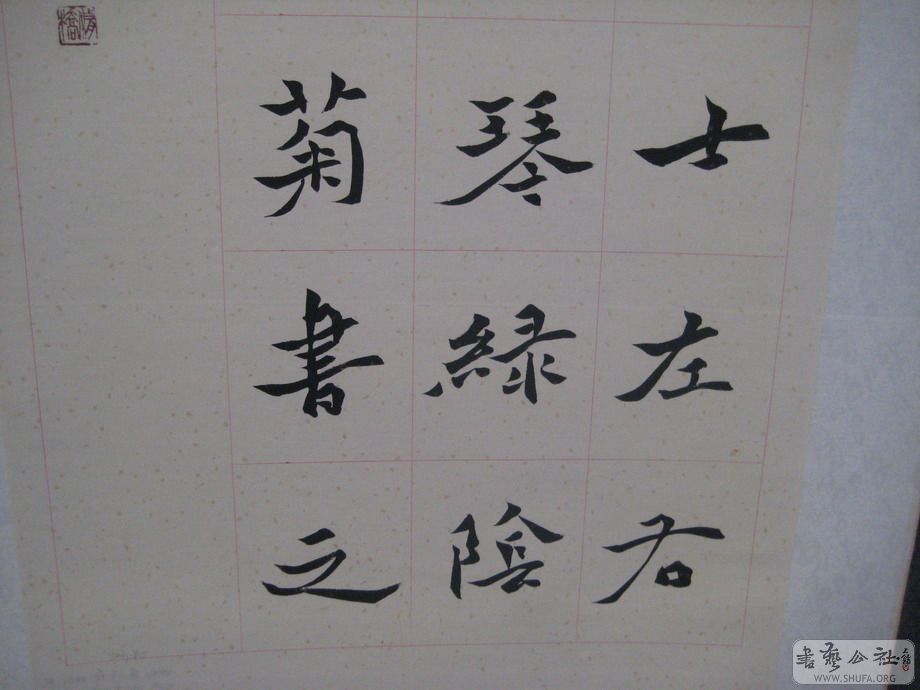 士左右
琴綠陰
菊書之
書藝公社
WWW.SHUFA.ORG